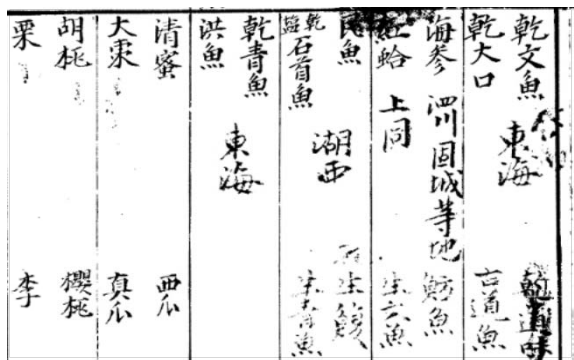 乾文魚 東海
乾大口 古道魚
海參 泗川固城等地 魴魚
紅蛤 上同 生大魚
民魚 湖西 生鰒
乾鹽石首魚 生青魚
乾青魚 東海
洪魚
清蜜 西瓜
大棗 真瓜
胡桃 櫻桃
栗 李